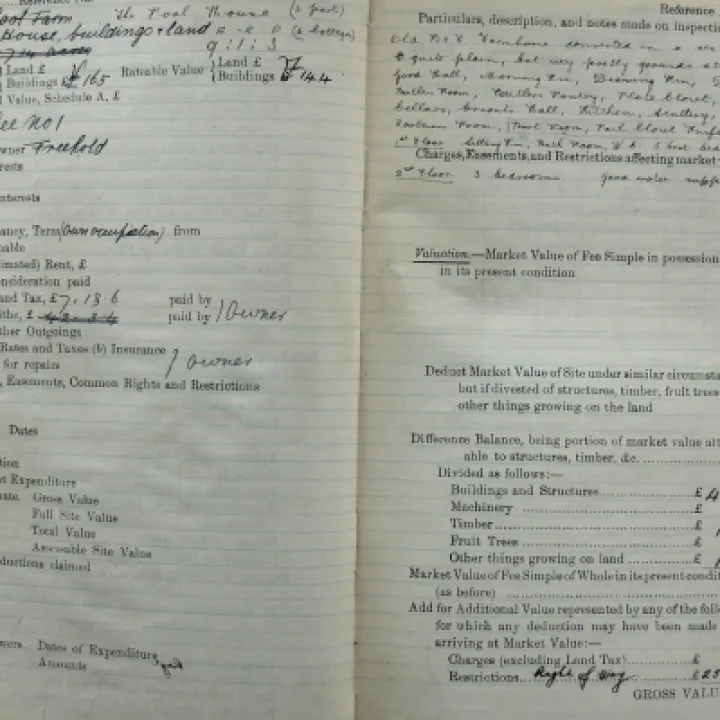 The Pool House (2 part)
House, buildings & land
Land £
Buildings £ 165 Rateable Value Land £
Buildings £ 144
Value, Schedule A, £
See No 1
Freehold
ancy, Term (Own occupation) from
imated) Rent, £
onsideration paid
and Tax, £7.13.6 paid by
paid by Owner
ther Outgoings
Rates and Taxes (b) Insurance
for repairs Owner
, Easements, Common Rights and Restrictions
Dates
t Expenditure
Gross Value
Full Site Value
Total Value
Assessable Site Value
ductions claimed
Dates of Expenditure
Amounts
Reference
Particulars, description, and notes made on inspection
& quite plain, but very pretty grounds
good Hall, Morning Rm, Drawing Rm,
Butler Room, Butlers Pantry, Plate Closet,
Cellars, Servants Hall, Kitchen, Scullery,
1st Floor Bath Room, W.C. 5 best
Charges, Easements, and Restrictions affecting market
2nd Floor 3 bedrooms good water
Valuation.—Market Value of Fee Simple in possession
in its present condition
Deduct Market Value of Site under similar circumsta
but if divested of structures, timber, fruit trees
other things growing on the land
Difference Balance, being portion of market value
able to structures, timber, &c.
Divided as follows:—
Buildings and Structures £
Machinery £
Timber £
Fruit Trees £
Other things growing on land £
Market Value of Fee Simple of Whole in its present condit
(as before)
Add for Additional Value represented by any of the foll
for which any deduction may have been made
arriving at Market Value:—
Charges (excluding Land Tax) £
Restrictions Right of Way £25
GROSS VALU